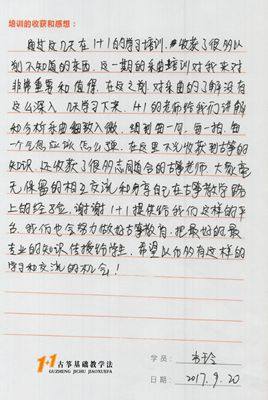 培训的收获和感想:
通过这几天在1+1的学习培训,收获了很多以
前不知道的东西,这一期的采曲培训对我来讲
非常重要和值得,在这之前对采曲的了解没有
这么深入,几天学习下来,1+1的老师给我们讲解
和分析采曲细致入微,细到每一句,每一拍,每
一个气息应该怎么弹,在这里不光收获到古筝的
知识,还收获了很多志同道合的古筝老师,大家毫
无保留的相互交流和分享自己在古筝教学路
上的经验,谢谢1+1提供给我们这样的平
台,我们也会努力做好古筝教育,把最好的最
专业的知识传授给学生,希望以后多有这样的
学习和交流的机会!
1+1 古筝基础教学法
GUZHENG JICHU JIAOXUEFA
学员:
日期: 2017.9.20